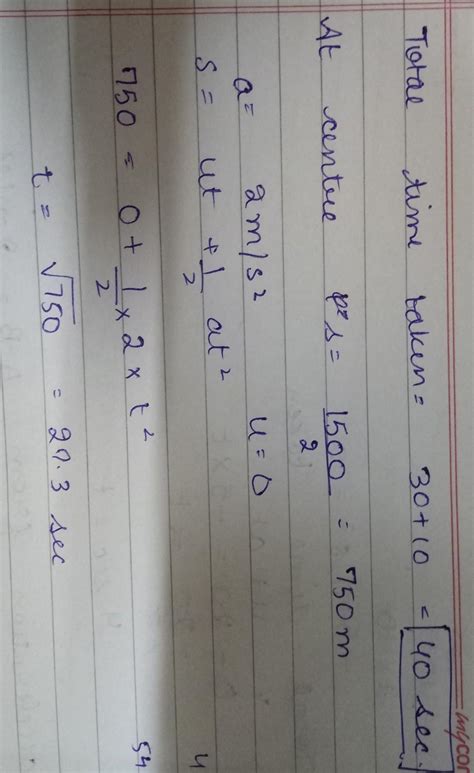 Total time taken = 30+10 = 40 sec.
At centre s = 1500/2 = 750m
a = 2m/s² u = 0
s = ut + 1/2 at²
750 = 0 + 1/2 × 2 × t²
t = √750 = 27.3 sec